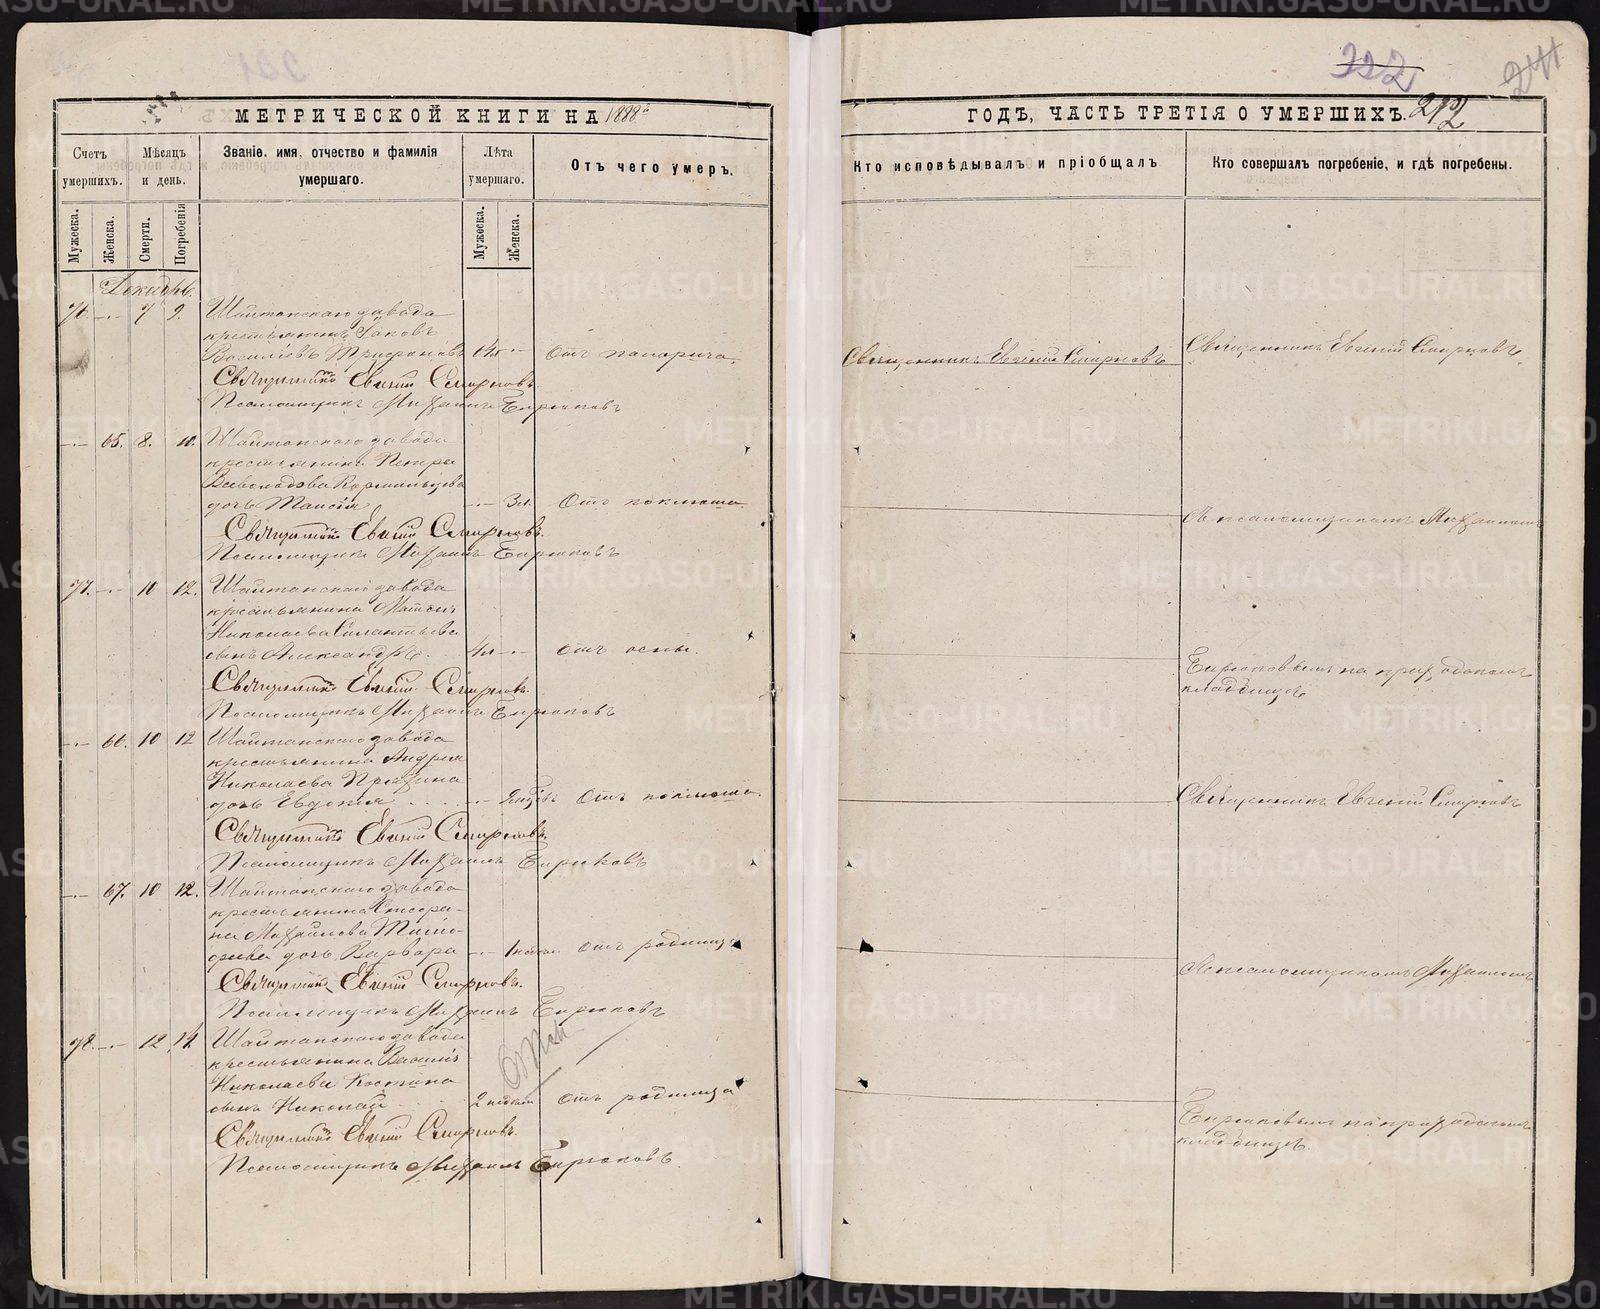 МЕТРИЧЕСКОЙ КНИГИ НА 1888й
Счетъ умершихъ.
Мѣсяцъ и день.
Званіе, имя, отчество и фамилія умершаго.
Лѣта умершаго.
Отъ чего умеръ.
Мужеска.
Женска.
Смерти.
Погребенія
Мужеска.
Женска.
Декабрь.
76. -.- 7 9. Шайтанскаго завода
крестьянинъ Іаковъ
Васильевъ Трифоновъ -.- Отъ паралича.
Священникъ Евгеній Смирновъ
Псаломщикъ Михаилъ Бирюковъ
-.- 65. 8. 10. Шайтанскаго завода
крестьянина Петра
Всеволодова Кормильцева
дочь Таисія -.- 3л. Отъ коклюша
Священникъ Евгеній Смирновъ.
Псаломщикъ Михаилъ Бирюковъ
77. -.- 10 12. Шайтанскаго завода
крестьянина
Николаева Силантьева
сынъ Александръ. 4л -.- Отъ оспы.
Священникъ Евгеній Смирновъ.
Псаломщикъ Михаилъ Бирюковъ
-.- 66. 10 12 Шайтанскаго завода
крестьянина Андрея
Николаева Пряхина
дочь Евдокія -.- Отъ коклюша.
Священникъ Евгеній Смирновъ.
Псаломщикъ Михаилъ Бирюковъ
-.- 67. 10 12. Шайтанскаго завода
крестьянина
на Михайлова Тимо-
феева дочь Варвара -.- Отъ родимца
Священникъ Евгеній Смирновъ.
Псаломщикъ Михаилъ Бирюковъ
78. -.- 12 14. Шайтанскаго завода
крестьянина Василія
Николаева Костина
сынъ Николай 2 недѣли Отъ родимца
Священникъ Евгеній Смирновъ.
Псаломщикъ Михаилъ Бирюковъ.
322
241
ГОДЪ, ЧАСТЬ ТРЕТІЯ О УМЕРШИХЪ. 212
Кто исповѣдывалъ и пріобщалъ
Кто совершалъ погребеніе, и гдѣ погребены.
Священникъ Евгеній Смирновъ
Священникъ Евгеній Смирновъ
съ псаломщикомъ Михаиломъ
Бирюковымъ на приходскомъ
кладбищѣ
Священникъ Евгеній Смирновъ
съ псаломщикомъ Михаиломъ
Бирюковымъ на приходскомъ
кладбищѣ.
METRIKI.GASO-URAL.RU